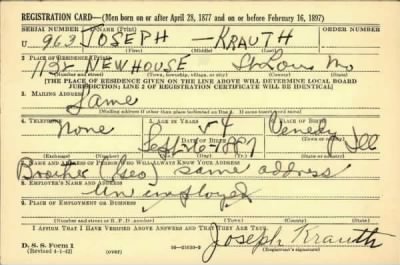 REGISTRATION CARD—(Men born on or after April 28, 1877 and on or before February 16, 1897)
SERIAL NUMBER 1. NAME (Print) ORDER NUMBER
U 963 JOSEPH — KRAUTH
(First) (Middle) (Last)
2. PLACE OF RESIDENCE (Print)
NEWHOUSE St Louis Mo
(Number and street) (Town, township, village, or city) (County) (State)
[THE PLACE OF RESIDENCE GIVEN ON THE LINE ABOVE WILL DETERMINE LOCAL BOARD
JURISDICTION; LINE 2 OF REGISTRATION CERTIFICATE WILL BE IDENTICAL]
3. MAILING ADDRESS
Same
(Mailing address if other than place indicated on line 2. If same insert word same)
4. TELEPHONE 5. AGE IN YEARS 6. PLACE OF BIRTH
None 54 Venedy
DATE OF BIRTH
Sept 6 1887 Ill
(Exchange) (Number) (Mo.) (Day) (Yr.) (State or country)
7. NAME AND ADDRESS OF PERSON WHO WILL ALWAYS KNOW YOUR ADDRESS
Brother (Geo) same address
8. EMPLOYER'S NAME AND ADDRESS
Unemployed
9. PLACE OF EMPLOYMENT OR BUSINESS
(Number and street or R. F. D. number) (Town) (County) (State)
I AFFIRM THAT I HAVE VERIFIED ABOVE ANSWERS AND THAT THEY ARE TRUE.
D. S. S. Form 1
(Revised 4-1-42) 16—21630-2
Joseph Krauth
(Registrant's signature)